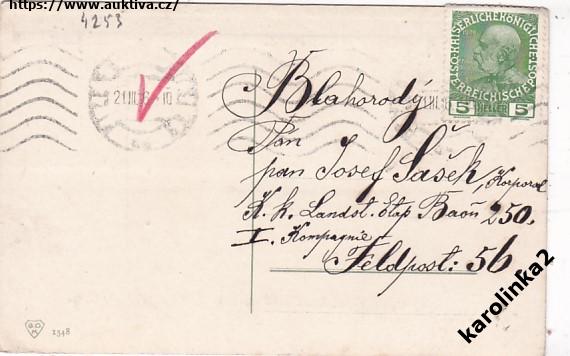 https://www.auktiva.cz/
4253
K.K. ÖSTERREICHISCHE
5 HELLER 5
21.III.
Blahorodý
Pán
pan Josef Sašek, Korporal
K. k. Landst. Etap Baon 250.
I. Kompagnie
Feldpost: 56
1348
karolinka2